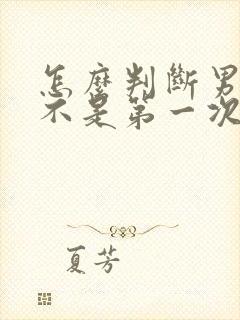 怎麼判斷男
不是第一次
夏芳